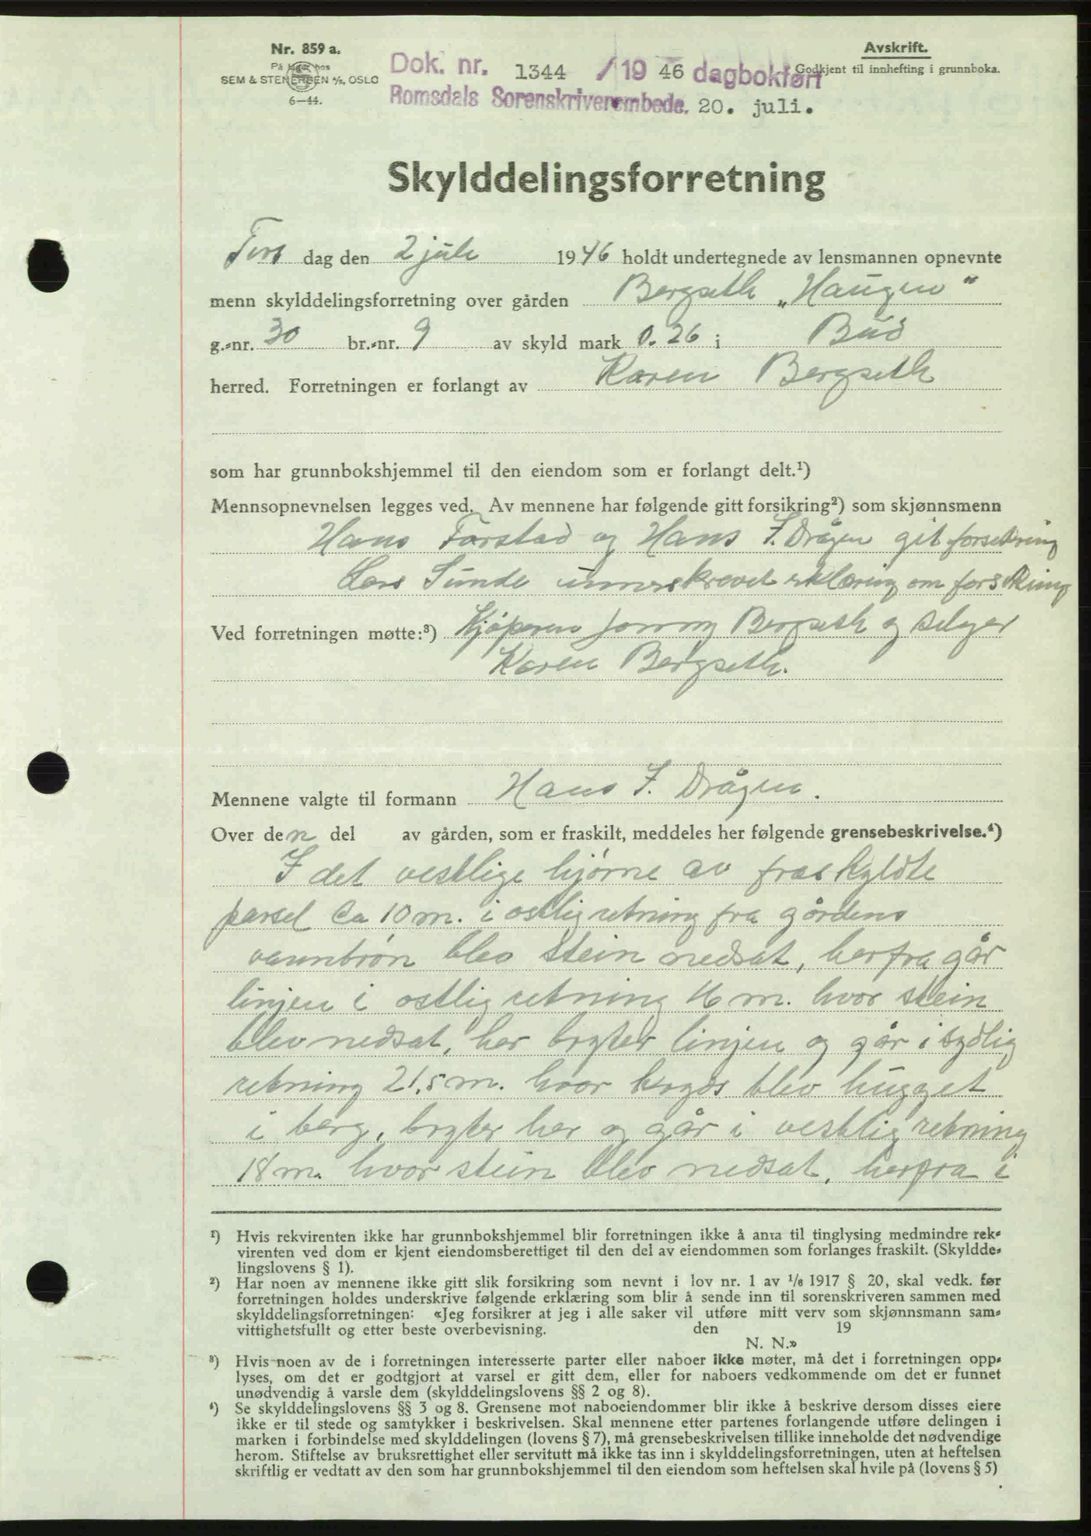 Nr. 859 a.
På lager hos
SEM & STENERSEN A/S, OSLO
6—44.
Avskrift.
Godkjent til innhefting i grunnboka.
Dok. nr. 1344 /19 46 dagbokført
Romsdals Sorenskriverembede. 20. juli.
Skylddelingsforretning
Tirs dag den 2 juli 1946 holdt undertegnede av lensmannen opnevnte
menn skylddelingsforretning over gården Bergseth „Haugen"
g.-nr. 30 br.-nr. 9 av skyld mark 0.26 i Bud
herred. Forretningen er forlangt av Karen Bergseth
som har grunnbokshjemmel til den eiendom som er forlangt delt.¹)
Mennsopnevnelsen legges ved. Av mennene har følgende gitt forsikring²) som skjønnsmenn
Hans Farstad og Hans I. Drågen git forsikring
Lars Sunde underskrevet erklæring om forsikring
Ved forretningen møtte:³) Kjøperen Jonny Bergseth og selger
Karen Bergseth.
Mennene valgte til formann Hans I. Drågen.
Over den del av gården, som er fraskilt, meddeles her følgende grensebeskrivelse.⁴)
I det vestlige hjørne av fraskyldte
parsel ca 10 m. i østlig retning fra gårdens
vannbrøn blev stein nedsat, herfra går
linjen i østlig retning 16 m. hvor stein
blev nedsat, her bryter linjen og går i sydlig
retning 21,5 m. hvor kryds blev hugget
i berg, bryter her og går i vestlig retning
18 m. hvor stein blev nedsat, herfra i
¹) Hvis rekvirenten ikke har grunnbokshjemmel blir forretningen ikke å anta til tinglysing medmindre rek-
virenten ved dom er kjent eiendomsberettiget til den del av eiendommen som forlanges fraskilt. (Skyldde-
lingslovens § 1).
²) Har noen av mennene ikke gitt slik forsikring som nevnt i lov nr. 1 av 1/6 1917 § 20, skal vedk. før
forretningen holdes underskrive følgende erklæring som blir å sende inn til sorenskriveren sammen med
skylddelingsforretningen: «Jeg forsikrer at jeg i alle saker vil utføre mitt verv som skjønnsmann sam-
vittighetsfullt og etter beste overbevisning. den 19
N. N.»
³) Hvis noen av de i forretningen interesserte parter eller naboer ikke møter, må det i forretningen opp-
lyses, om det er godtgjort at varsel er gitt dem, eller for naboers vedkommende om det er funnet
unødvendig å varsle dem (skylddelingslovens §§ 2 og 8).
⁴) Se skylddelingslovens §§ 3 og 8. Grensene mot naboeiendommer blir ikke å beskrive dersom disses eiere
ikke er til stede og samtykker i beskrivelsen. Skal mennene etter partenes forlangende utføre delingen i
marken i forbindelse med skylddelingen (lovens § 7), må grensebeskrivelsen tillike inneholde det nødvendige
herom. Stiftelse av bruksrettighet eller servitutt må ikke tas inn i skylddelingsforretningen, uten at heftelsen
skriftlig er vedtatt av den som har grunnbokshjemmel til den eiendom som heftelsen skal hvile på (lovens § 5)